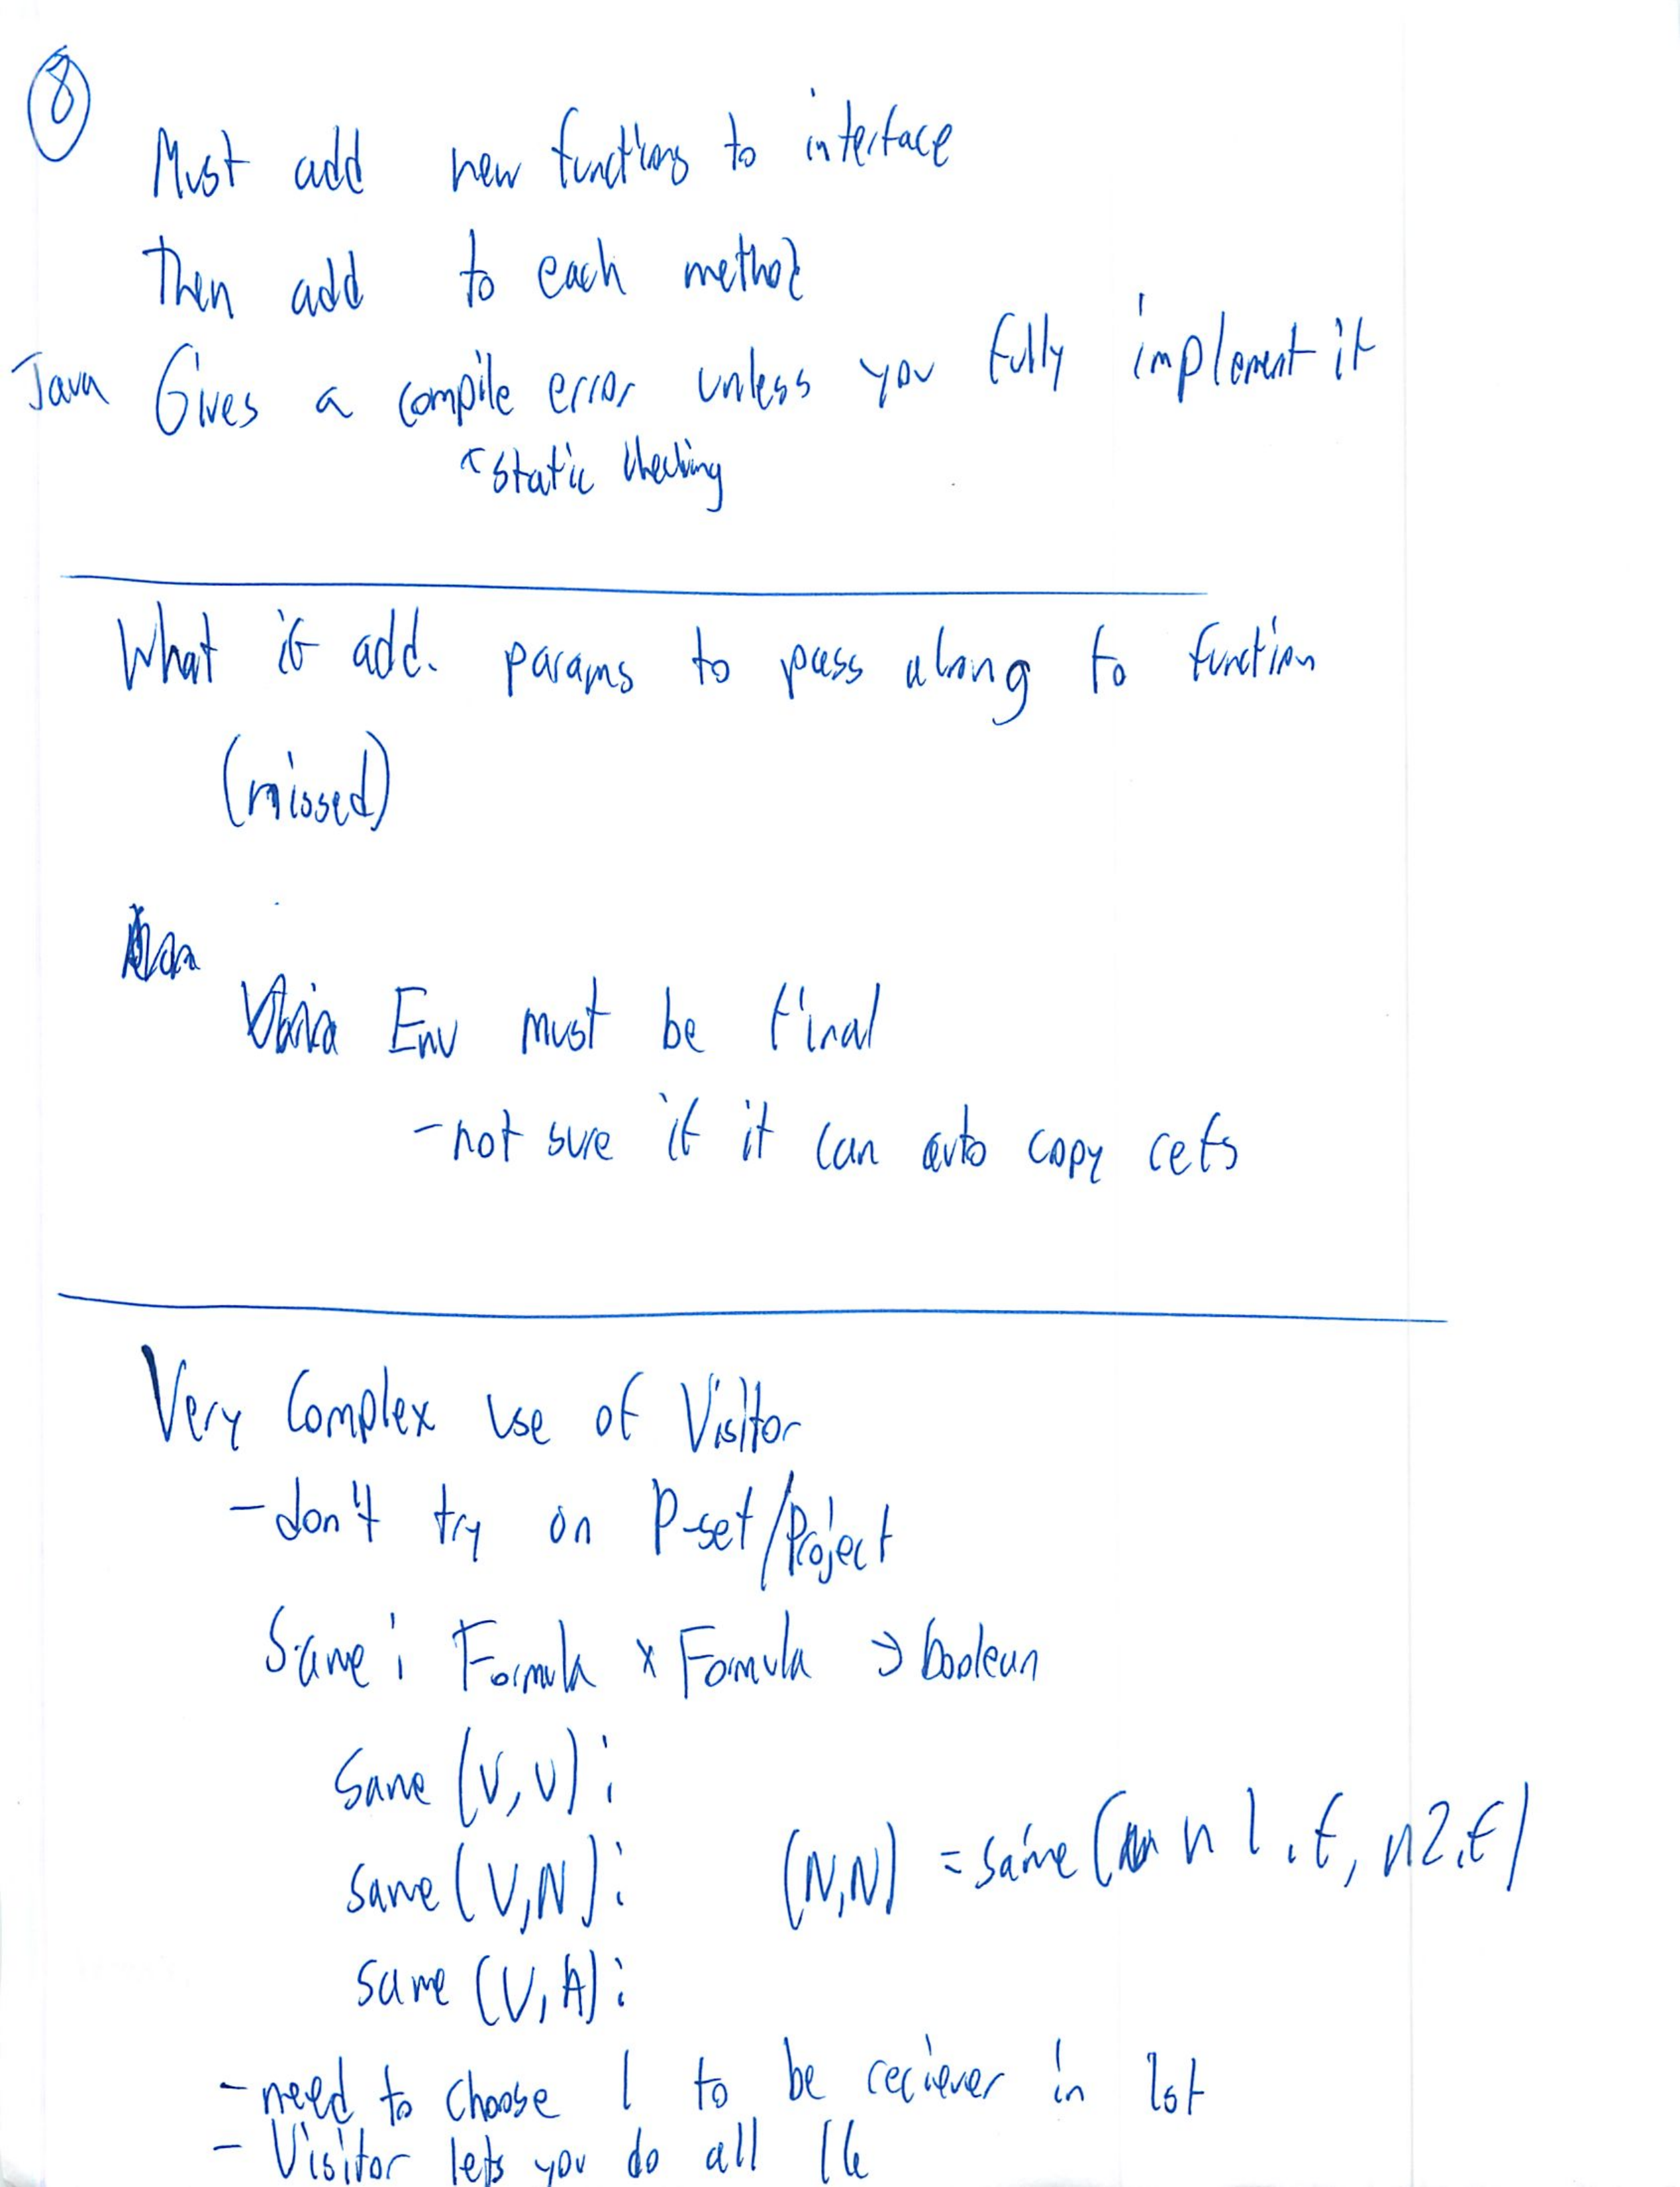 8
Must add new functions to interface
Then add to each method
Java Gives a compile error unless you fully implement it
↖ static checking
What if add. params to pass along to function
(missed)
Env must be final
- not sure if it can auto copy refs
Very Complex use of Visitor
- don't try on P-set/Project
Same: Formula x Formula → boolean
Same (V,V):
same (V,N): (N,N) = same (n1.f, n2.f)
same (V,A):
- need to choose 1 to be reciever in 1st
- Visitor lets you do all 16